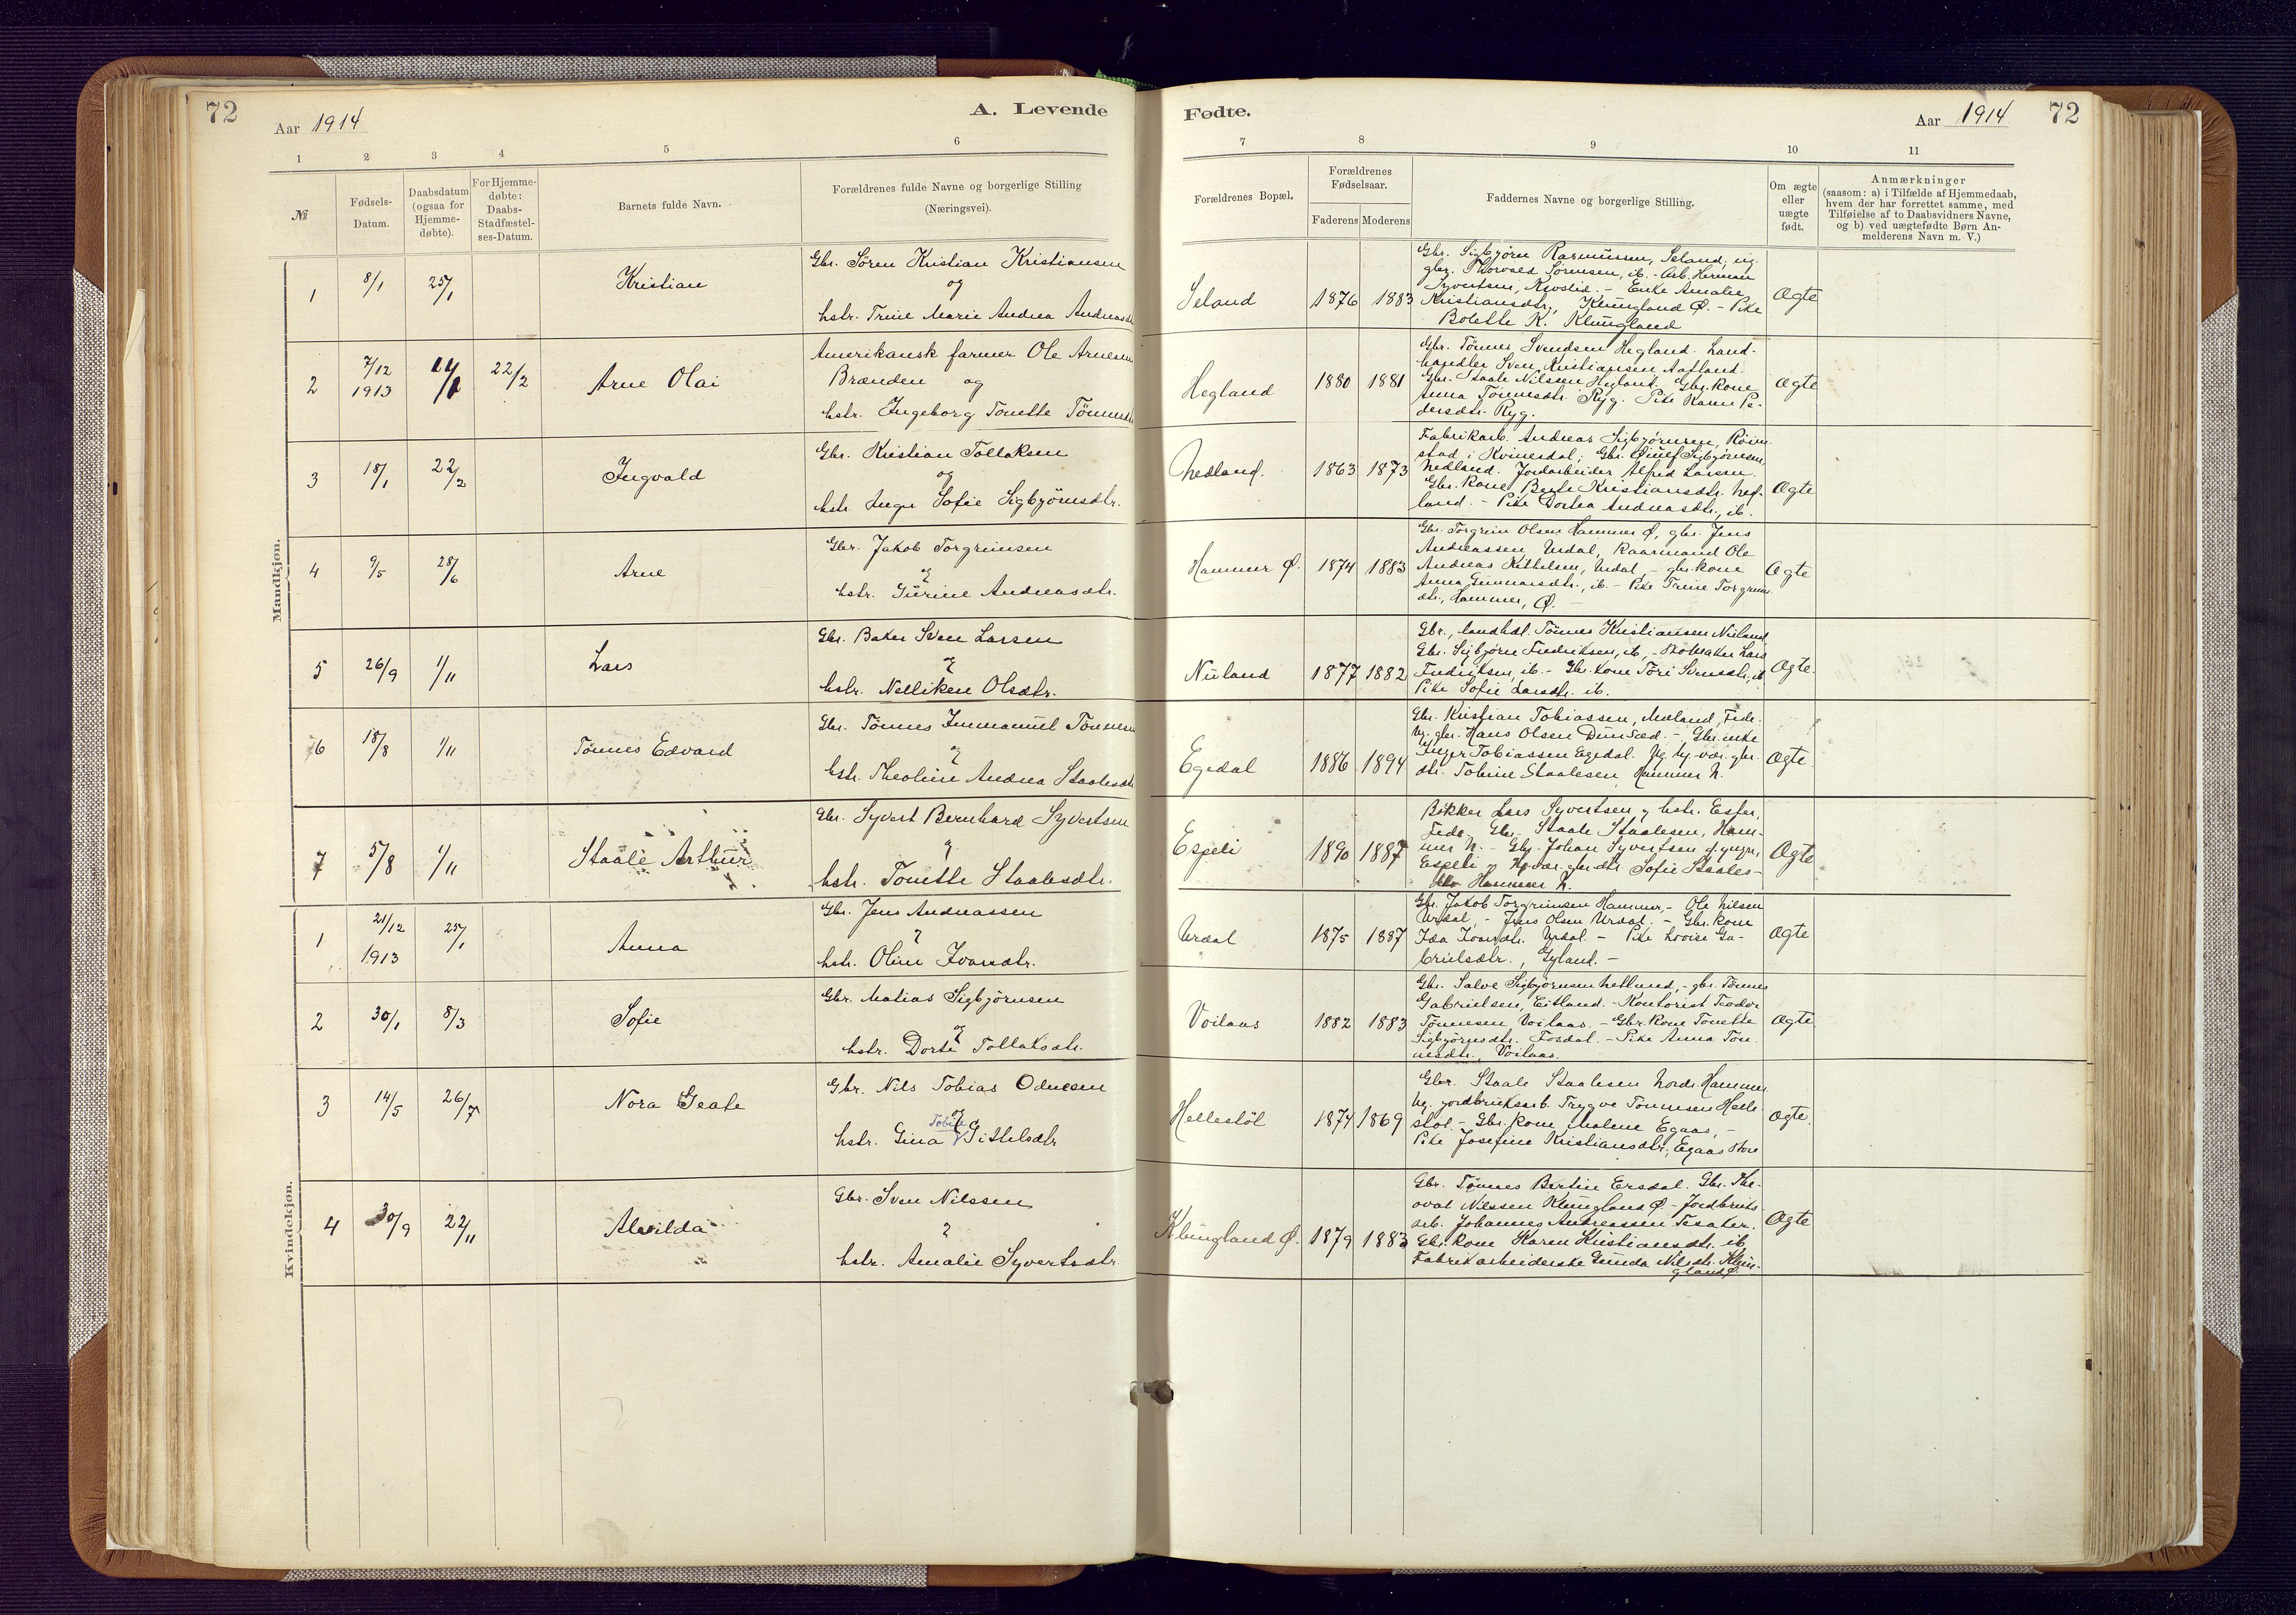 72
Aar 1914
A. Levende
Fødte.
Aar 1914
72
1 2 3 4 5 6
7 8 9 10 11
№
Fødsels-
Datum.
Daabsdatum
(ogsaa for
Hjemme-
døbte).
For Hjemme-
døbte:
Daabs-
Stadfæstel-
ses-Datum.
Barnets fulde Navn.
Forældrenes fulde Navne og borgerlige Stilling
(Næringsvei).
Forældrenes Bopæl.
Forældrenes
Fødselsaar.
Faderens Moderens
Faddernes Navne og borgerlige Stilling.
Om ægte
eller
uægte
født.
Anmærkninger
(saasom: a) i Tilfælde af Hjemmedaab,
hvem der har forrettet samme, med
Tilføielse af to Daabsvidners Navne,
og b) ved uægtefødte Børn An-
melderens Navn m. V.)
Mandkjøn.
1 8/1 25/1 Kristian
Gbr. Sören Kristian Kristiansen
og
hstr. Trine Marie Andrea Andreasdtr
Seland 1876 1883
Gbr. Sigbjörn Rasmussen, Seland; ug.
gbr. Thorvald Sörensen, ib. - Arb. Herman
Syvertsen, - Enke Amalie
Kristiansdtr, Klungland Ø. - Pike
Bolette K. Klungland
Ægte
2 7/12 1913 22/2 Arne Olai
Amerikansk farmer Ole Arnesen
Brænden og
hstr. Ingeborg Tonette Tönnesdtr
Hegland 1880 1881
Gbr. Tönnes Svendsen Hegland. Land-
handler Sven Kristiansen Aatland.
Gbr. Staale Nilssen Hegland. Gbr. kone
Anna Tönnesdtr. Ryg. Pike Karen Pe-
dersdtr. Ryg.
Ægte
3 18/1 22/2 Ingvald
Gbr. Kristian Tollaksen
og
hstr. Inger Sofie Sigbjörnsdtr.
Nedland. 1863 1873
Fabrikarb. Andreas Sigbjörnsen, Röin-
stad i Kvinesdal; Gbr. Sigbjörnsen,
Nedland. Jordarbeider Alfred Larsen.
Gbr. kone Berte Kristiansdtr. Ned-
land. - Pike Dortea Andreasdtr., ib.
Ægte
4 9/5 28/6 Arne
Gbr. Jakob Torgrimsen
og
hstr. Gurine Andreasdtr.
Hammer Ø. 1874 1883
Gbr. Torgrim Olsen Hammer Ø, gbr. Jens
Andreassen, Urdal, Kaarmand Ole
Andreas Kittelsen, Urdal, - gbr. kone
Anna Gunnarsdtr., ib. - Pike Trine Torgrims
dtr., Hammer, Ø. -
Ægte
5 26/9 1/11 Lars
Gbr. Baker Sven Larsen
og
hstr. Nelliken Olsdtr.
Nuland 1877 1882
Gbr., landhdl. Tönnes Kristiansen Nuland
Gbr. Sigbjörn Fredriksen, ib, - Skomaker Lars
Fredriksen, ib. - Gbr. kone Tori Svensdtr, ib
Pike Sofie Larsdtr. ib.
Ægte.
6 18/8 1/11 Tönnes Edvard
Gbr. Tönnes Immanuel Tönnesen
og
hstr. Theoline Andrea Staalesdtr
Egedal 1886 1894
Gbr. Kristian Tobiassen, Mæland, Fede.
Ug. gbr. Hans Olsen Dunsæd. - Gbr. enke
Inger Tobiassen Egedal. Pg. Hj. vær. gbr.
dtr. Tobine Staalesen Hammer N.
Ægte.
7 5/8 1/11 Staale Arthur
Gbr. Syvert Bernhard Syvertsen
og
hstr. Tonette Staalesdtr.
Espeli 1890 1887
Bökker Lars Syvertsen og hstr. Ester,
Fede, Gbr. Staale Staalesen, Ham-
mer N. - Gbr. Johan Syvertsen d. yngre,
Espeli og Hj. vær. gbr. dtr. Sofie Staales-
dtr Hammer N.
Ægte
Kvindekjøn.
1 21/12 1913 25/1 Anna
Gbr. Jens Andreassen
og
hstr. Oline Ivarsdtr.
Urdal 1875 1887
Gbr. Jakob Torgrimsen Hammer, - Ole Nilsen
Urdal, - Jens Olsen Urdal. - Gbr. kone
Ida Ivarsdtr. Urdal. - Pike Lovise Ga-
brielsdtr., Gyland. -
Ægte
2 30/1 8/3 Sofie
Gbr. Matias Sigbjörnsen
og
hstr. Dorte Tollaksdtr.
Voilaas 1882 1883
Gbr. Salve Sigbjörnsen Netland, - gbr. Tönnes
Gabrielsen, Eitland. - Kontorist Teodor
Tönnesen, Voilaas. - Gbr. kone Tonette
Sigbjörnsdtr. Fosdal. - Pike Anna Tön-
nesdtr., Voilaas.
Ægte
3 14/5 26/7 Nora Geate
Gbr. Nils Tobias Odnesen
og
Tobine
hstr. Gina Gittelsdtr
Hellestöl 1874 1869
Gbr. Staale Staalesen Nordr. Hammer
Ug. jordbruksarb. Trygve Tönnesen Helle
stöl. - Gbr. kone Malene Egaas, -
Pike Josefine Kristiansdtr, Egaas store
Ægte.
4 30/9 22/11 Alvilda
Gbr. Sven Nilssen
og
hstr. Amalie Syvertsdtr.
Klungland Ø. 1879 1883
Gbr. Tönnes Bertin Ersdal. Gbr. The-
oval Nilssen Klungland Ø. - Jordbruks
arb. Johannes Andreassen Tesaker.
Gbr. kone Karen Kristiansdtr. ib
Fabrikarbeiderske Gunda Nilsdtr. Klun-
gland Ø.
Ægte